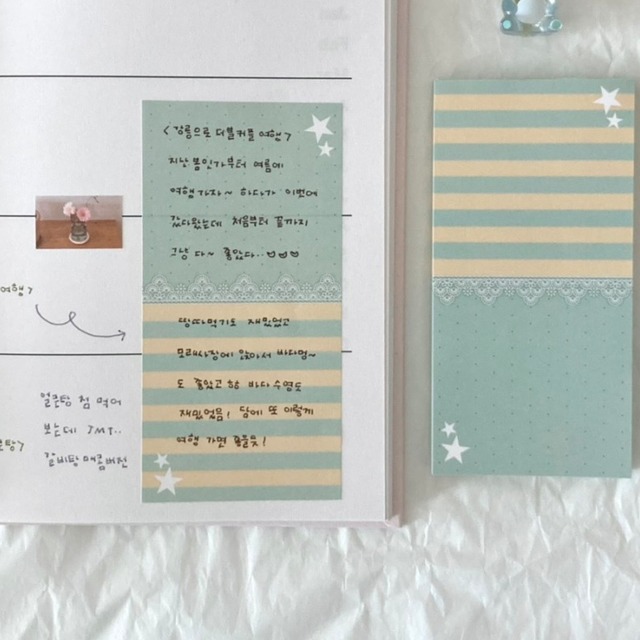 <강릉으로 더블커플 여행>
지난 봄인가부터 여름에
여행 가자~ 하다가 이번에
갔다왔는데 처음부터 끝까지
그냥 다~ 좋았다..
먹기도 재밌었고
모래사장에 앉아서 바다멍~
도 좋았고 바다수영도
재밌었음! 담에 또 이렇게
여행 가면 좋을듯!
여행>
얼큰탕 첨 먹어
보는데 JMT..
갈비탕 매콤버전